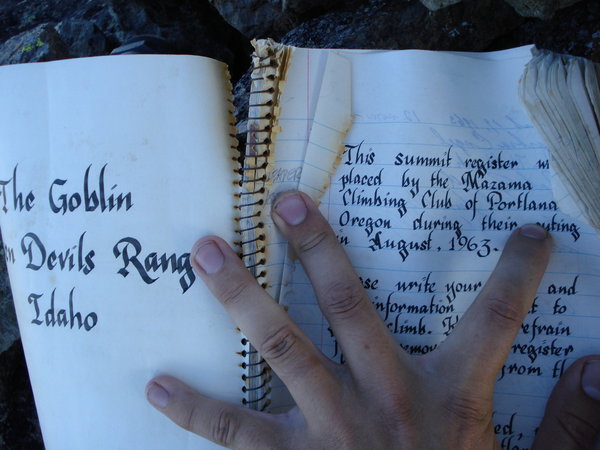 The Goblin
Devils Rang
Idaho
This summit register w
placed by the Mazama
Climbing Club of Portland
Oregon during their
in August, 1963.
write your and
information to
climb.
register
from th